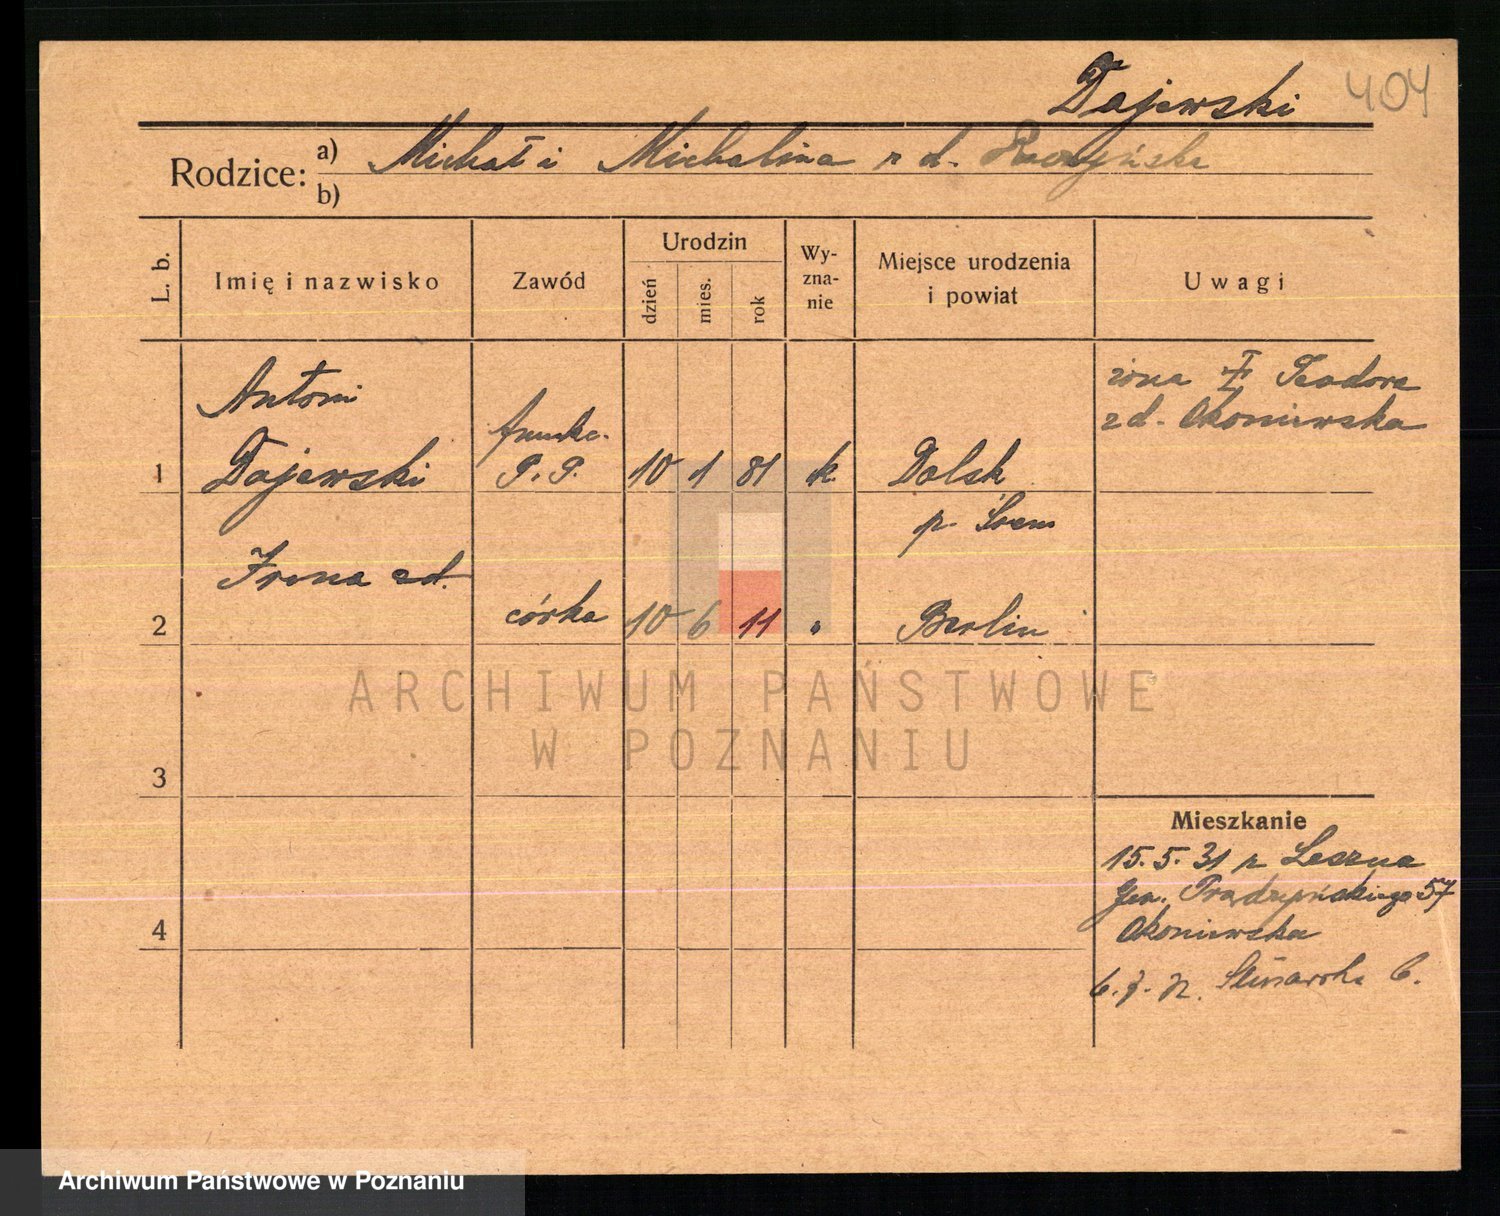 Dajewski 404
Rodzice: a) Michał i Michalina z d.
b)
L. b. Imię i nazwisko Zawód Urodzin dzień mies. rok Wy-zna-nie Miejsce urodzenia i powiat Uwagi
żona Teodora
z d. Okoniewska
Antoni
1 Dajewski P. P. 10 1 81 k. Dolsk
p. Śrem
Irena z d.
2 córka 10 6 11 " Berlin
ARCHIWUM PAŃSTWOWE
W POZNANIU
3
Mieszkanie
15.5.31 z Leszna
Gen. Prądzyńskiego 57
4 Okoniewska
Archiwum Państwowe w Poznaniu